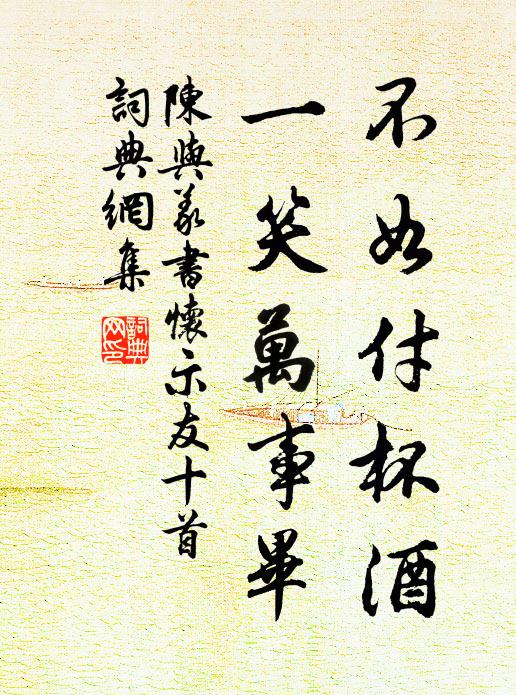 不如付杯酒
一笑萬事畢
陳與義書懷示友十首
詞典網集
詞典
网印